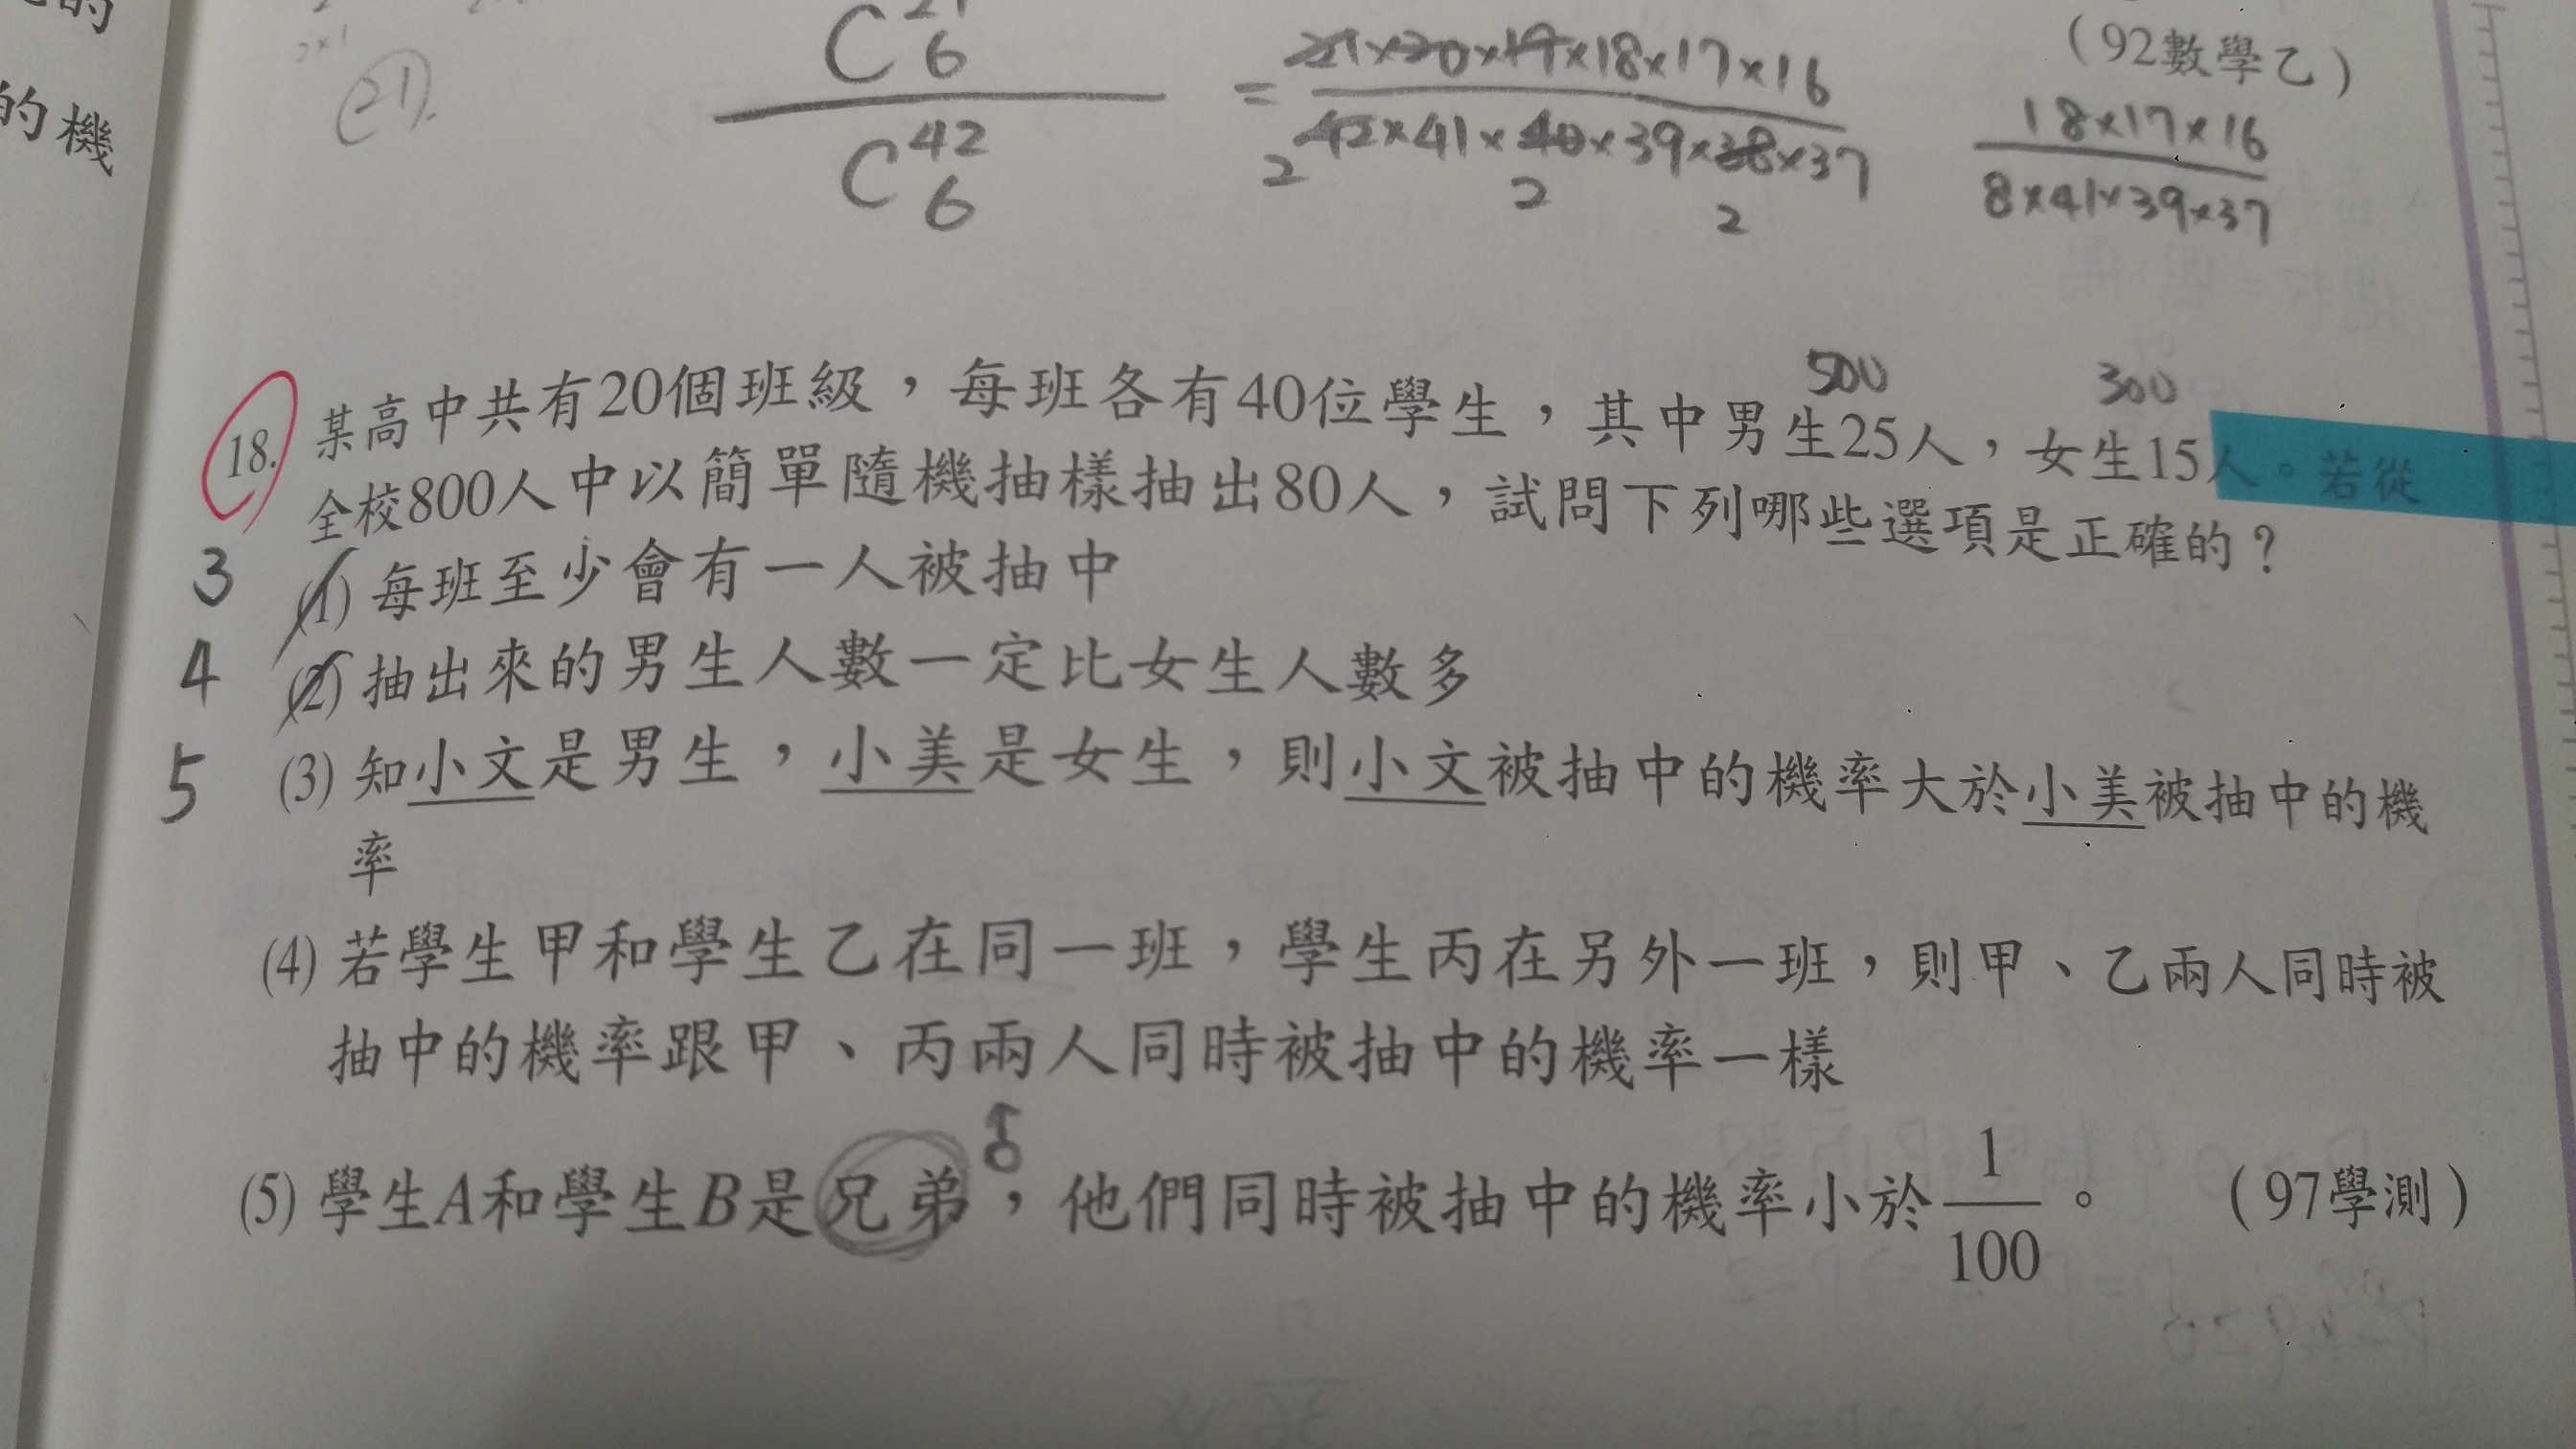 的
的機
(21).
C 6
C 42 6
= 21×20×19×18×17×16
42×41×40×39×38×37
2 2 2
(92數學乙)
18×17×16
8×41×39×37
500 300
18. 某高中共有20個班級，每班各有40位學生，其中男生25人，女生15人。若從
全校800人中以簡單隨機抽樣抽出80人，試問下列哪些選項是正確的？
3 (1) 每班至少會有一人被抽中
4 (2) 抽出來的男生人數一定比女生人數多
5 (3) 知小文是男生，小美是女生，則小文被抽中的機率大於小美被抽中的機
率
(4) 若學生甲和學生乙在同一班，學生丙在另外一班，則甲、乙兩人同時被
抽中的機率跟甲、丙兩人同時被抽中的機率一樣
(5) 學生A和學生B是兄弟，他們同時被抽中的機率小於1/100。 (97學測)